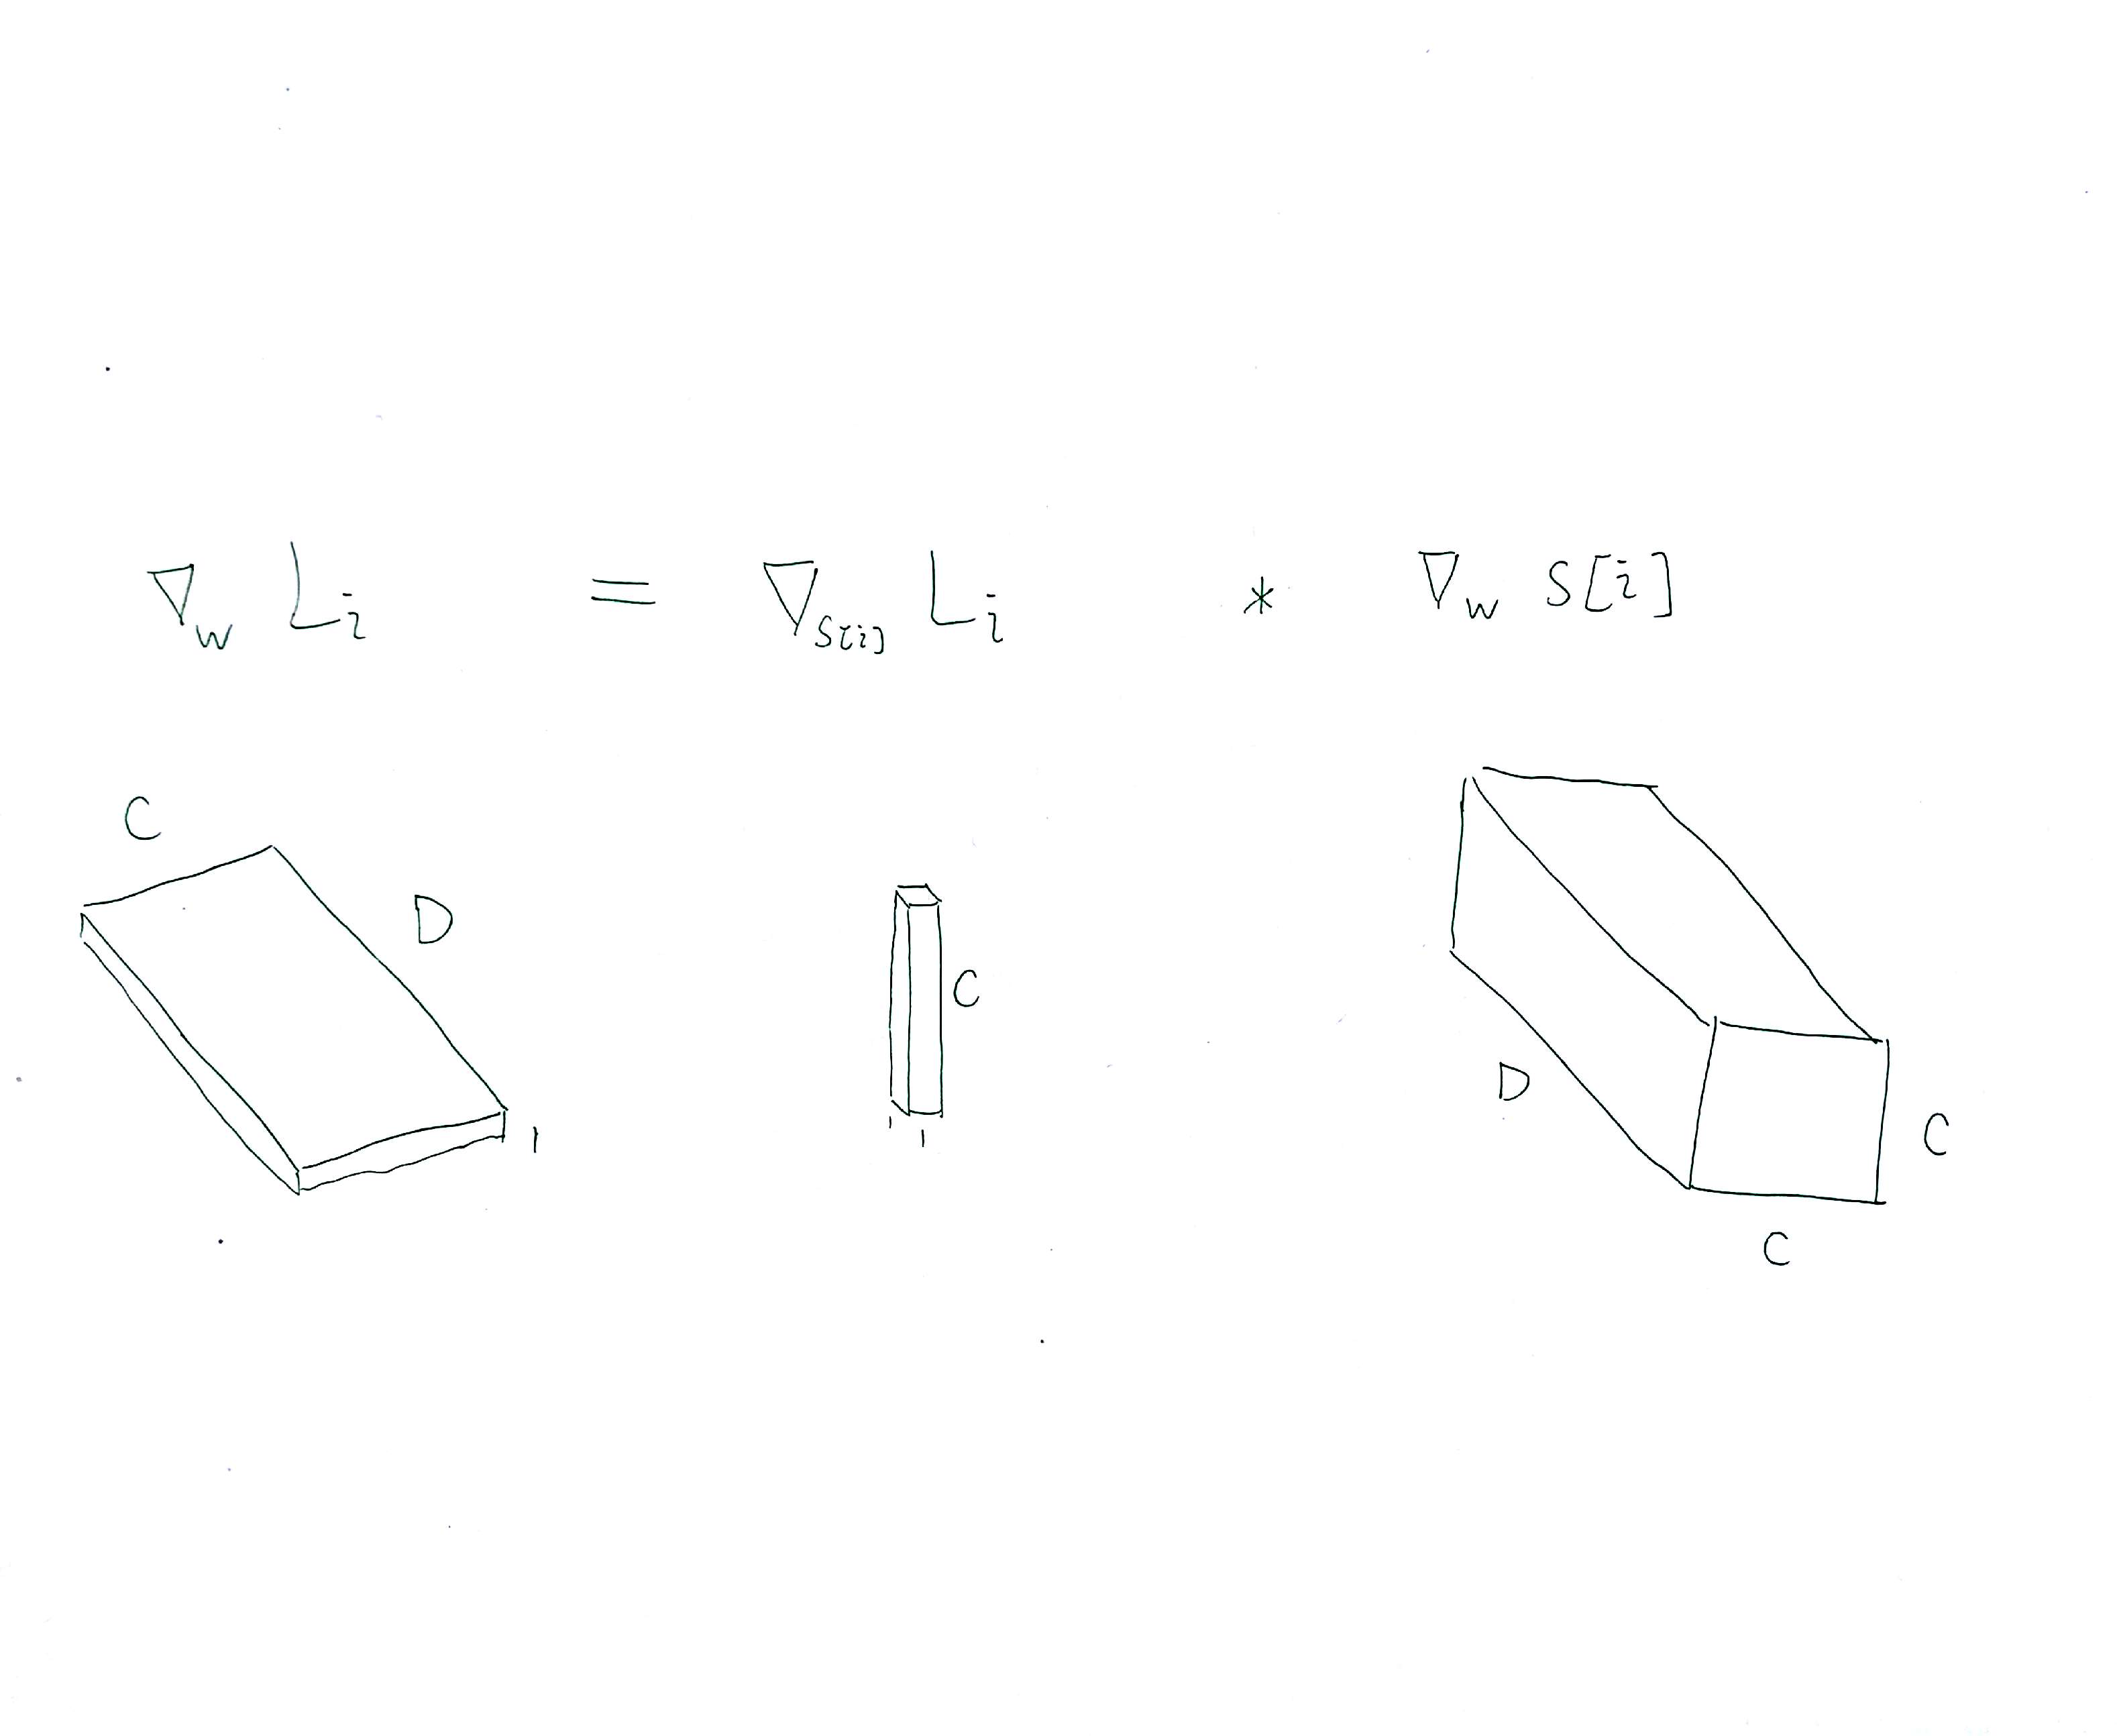 ∇_W L_i = ∇_{S[i]} L_i * ∇_W S[i]
C
D
1
C
1
1
D
C
C